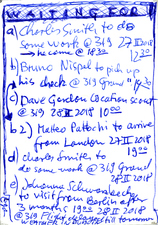 WAITING FOR
a) Charles Smith to do
some work @ 319 27 II 2018
b) Bruno Nispel to pick up
his check @ 319 Grand
c) Dave Gordon location scout
@ 319 28 II 2018 10 00
b 2) Matteo Pattochi to arrive
from London 27 II 2018
d) Charles Smith to
do some work @ 319 Grand
28 II 2018
e) Johanna
to visit from Berlin after
3 months 19 00 28 II 2018
@ 319